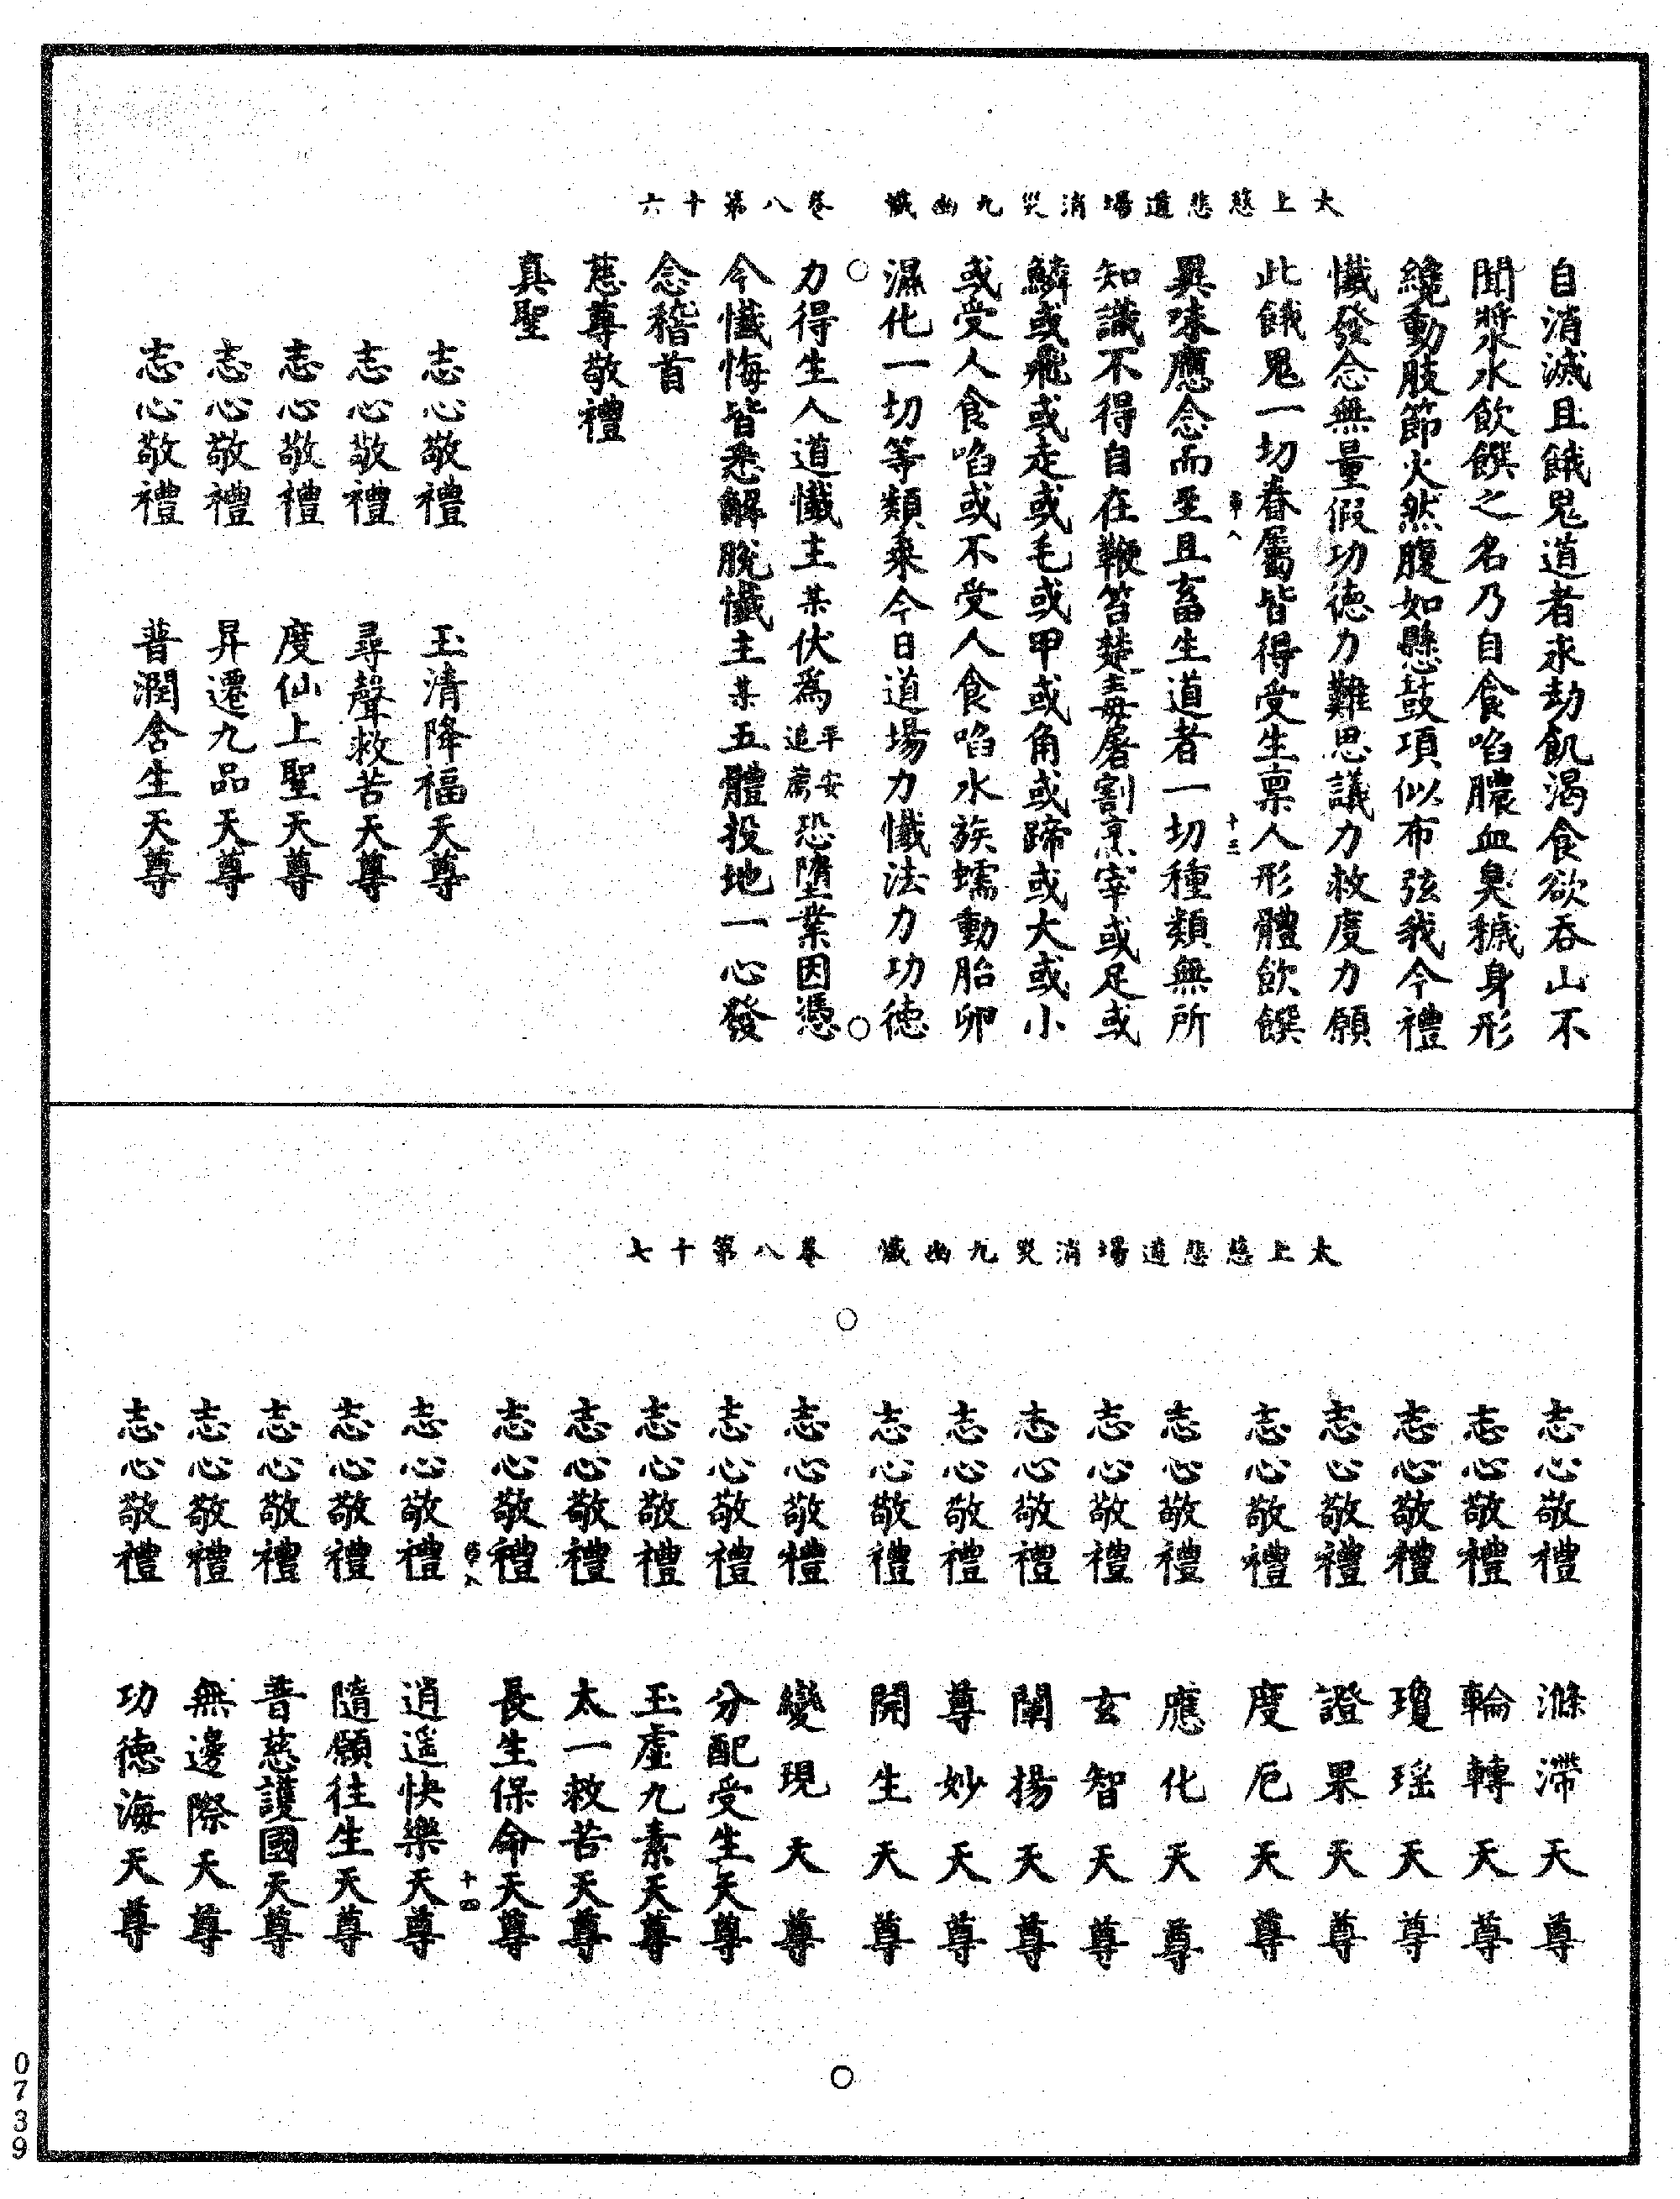 太上慈悲道場消災九幽懺　卷八第十六
自消滅且餓鬼道者永劫飢渴食欲吞山不
聞漿水飲饌之名乃自食啗膿血臭穢身形
纔動肢節火然腹如懸鼓項似布弦我今禮
懺發念無量假功德力難思議力救度力願
此餓鬼一切眷屬皆得受生稟人形體飲饌
章八　十三
異味應念而至且畜生道者一切種類無所
知識不得自在鞭笞楚毒屠割烹宰或足或
鱗或飛或走或毛或甲或角或蹄或大或小
或受人食啗或不受人食啗水族蠕動胎卵
濕化一切等類乘今日道場力懺法力功德
力得生人道懺主某伏為平安追薦恐墮業因憑
今懺悔皆悉解脫懺主某五體投地一心發
念稽首
慈尊敬禮
真聖
志心敬禮　玉清降福天尊
志心敬禮　尋聲救苦天尊
志心敬禮　度仙上聖天尊
志心敬禮　昇遷九品天尊
志心敬禮　普潤含生天尊
太上慈悲道場消災九幽懺　卷八第十七
志心敬禮　滌滯天尊
志心敬禮　輪轉天尊
志心敬禮　瓊瑤天尊
志心敬禮　證果天尊
志心敬禮　度厄天尊
志心敬禮　應化天尊
志心敬禮　玄智天尊
志心敬禮　闡揚天尊
志心敬禮　尊妙天尊
志心敬禮　開生天尊
志心敬禮　變現天尊
志心敬禮　分配受生天尊
志心敬禮　玉虛九素天尊
志心敬禮　太一救苦天尊
志心敬禮　長生保命天尊
章八　十四
志心敬禮　逍遥快樂天尊
志心敬禮　隨願往生天尊
志心敬禮　普慈護國天尊
志心敬禮　無邊際天尊
志心敬禮　功德海天尊
0739